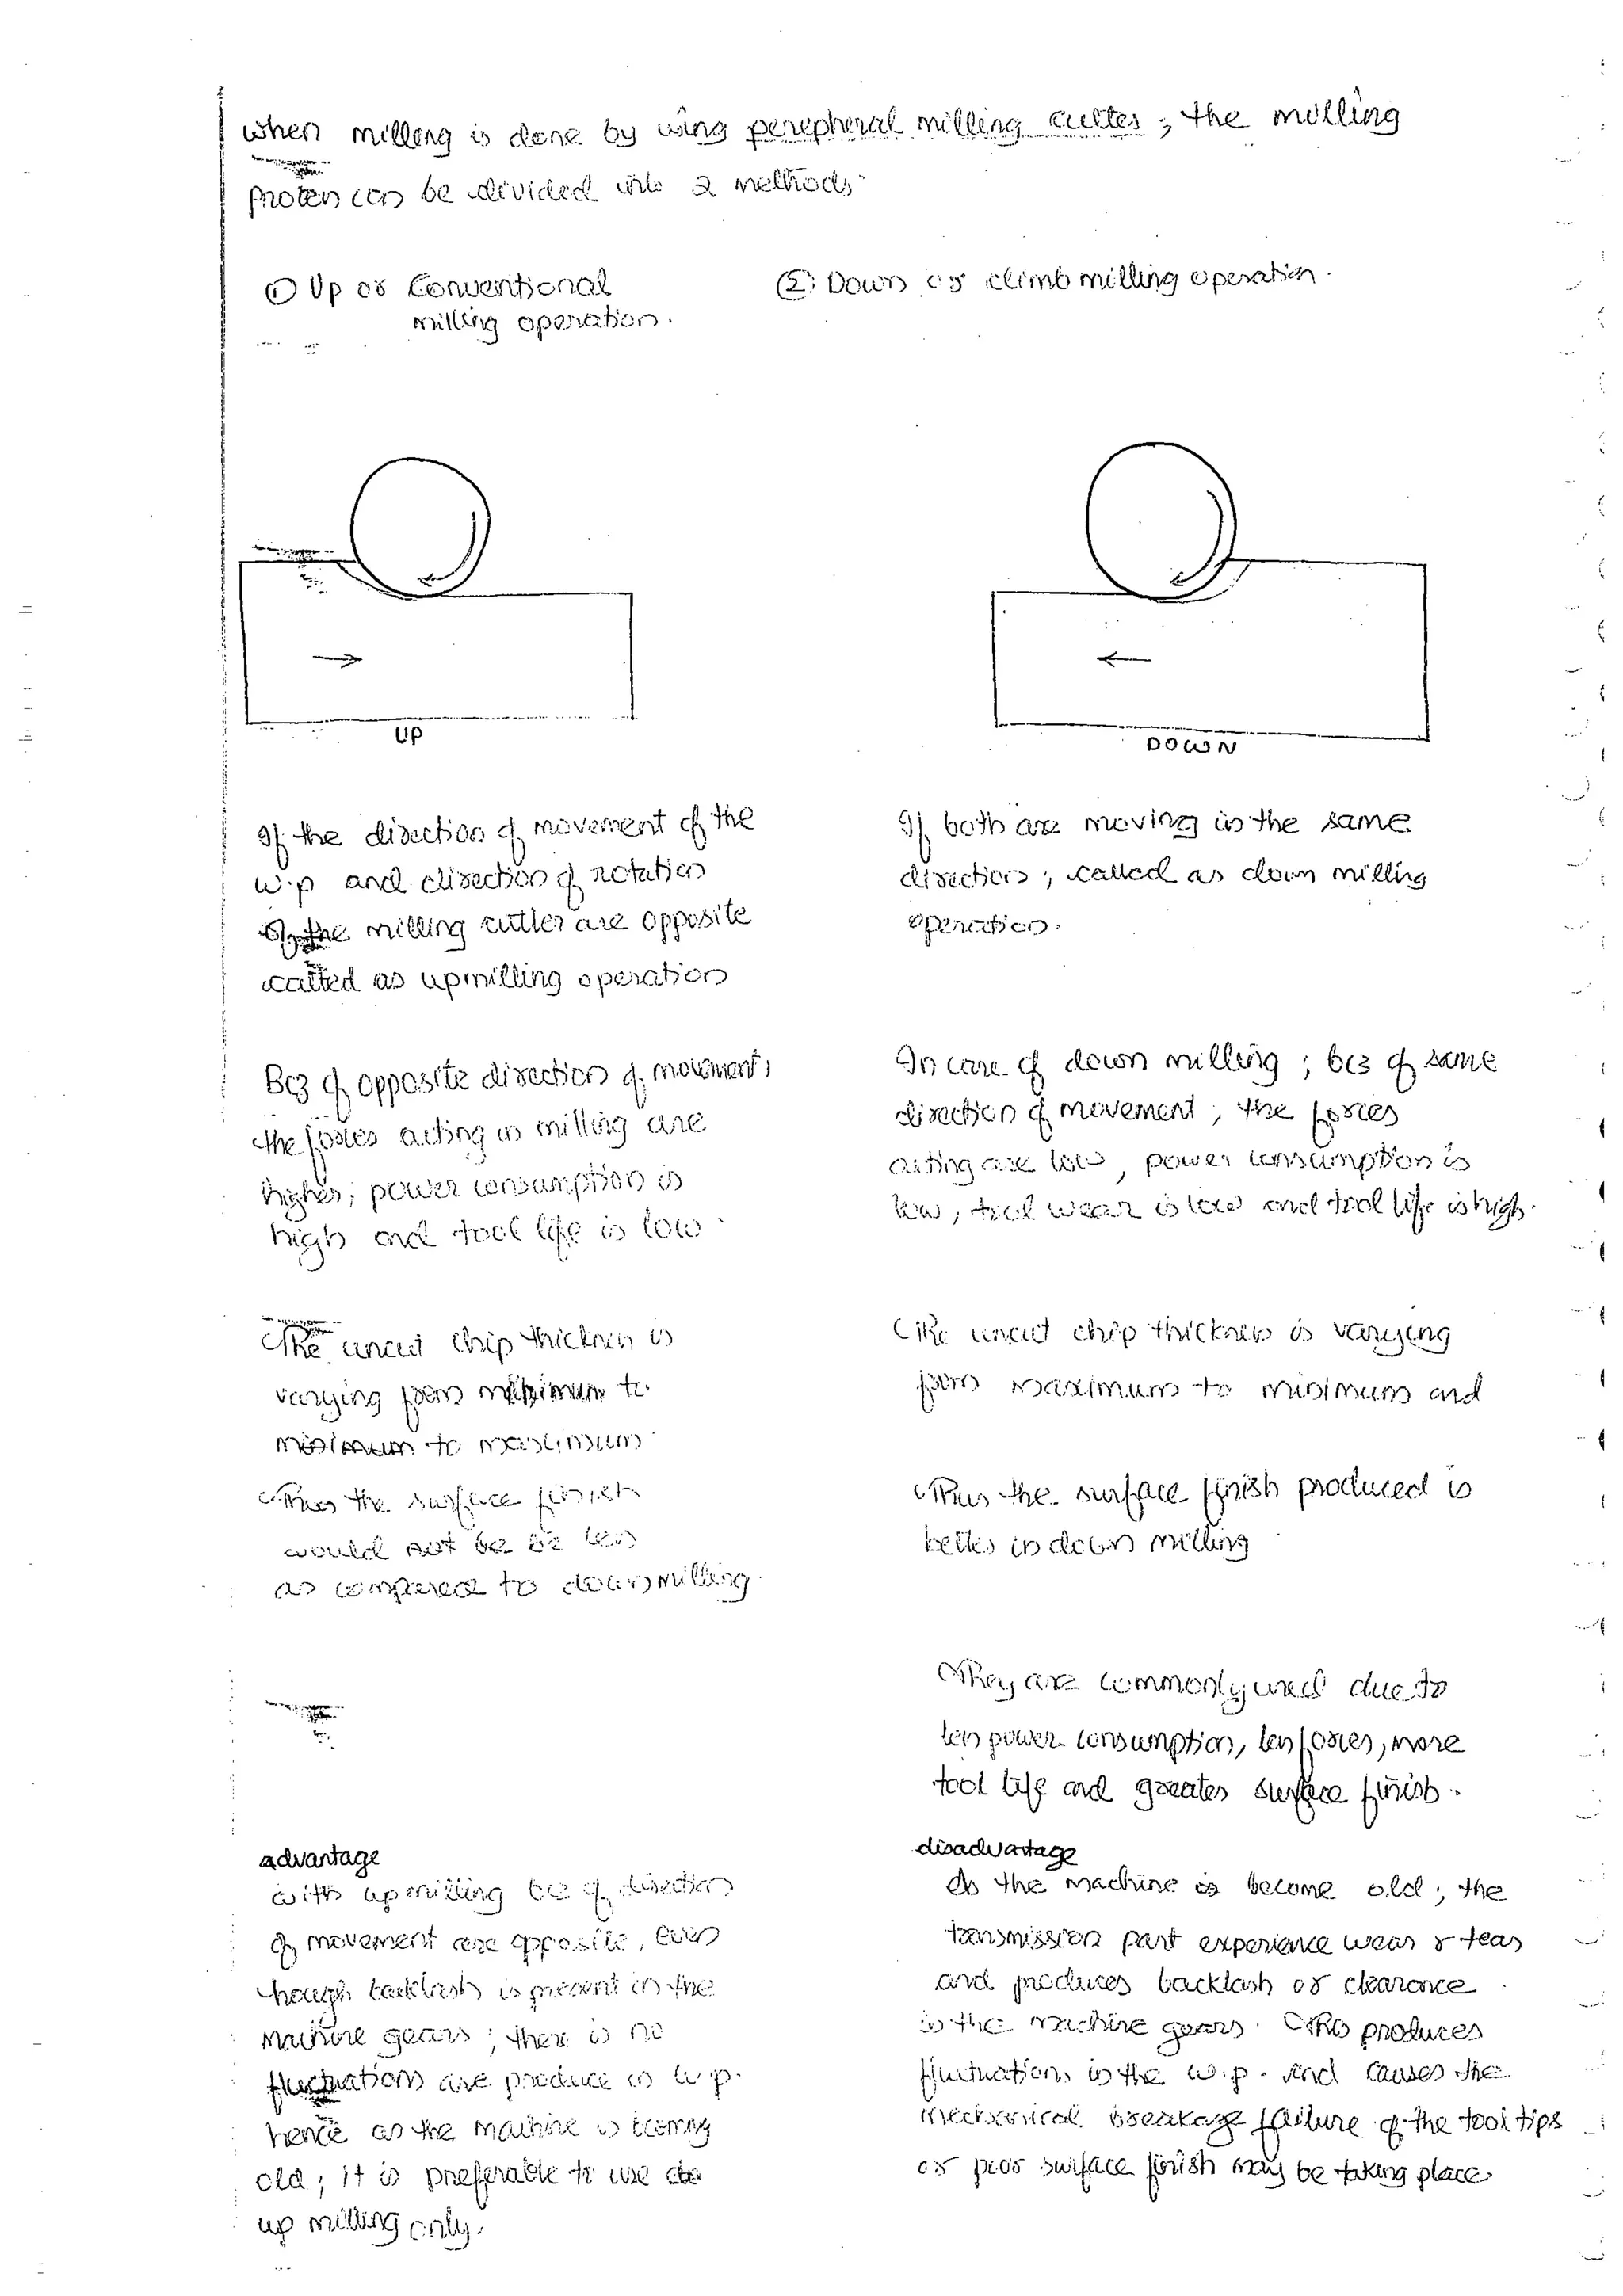 when milling is done by using peripheral milling cutter ; the milling
process can be divided into 2 methods
① Up or Conventional
milling operation.
② Down or climb milling operation.
UP
If the direction of movement of the
w.p and direction of rotation
of the milling cutter are opposite
called as upmilling operation
Bcz of opposite direction of movement,
the forces acting in milling are
higher, power consumption is
high and tool life is low.
The uncut chip thickness is
varying from minimum to
minimum to maximum
Thus the surface finish
would not be be less
as compared to down milling.
advantage
with upmilling bcz of direction
of movement are opposite, even
though backlash is present in the
machine gears ; there is no
fluctuations are produce in w.p.
hence as the machine is becoming
old ; it is preferable to use
up milling only.
DOWN
If both are moving in the same
direction ; called as down milling
operation.
In case of down milling ; bcz of same
direction of movement ; the forces
acting are low, power consumption is
low, tool wear is low and tool life is high.
The uncut chip thickness is varying
from maximum to minimum and
Thus the surface finish produced is
better in down milling
They are commonly used due to
less power consumption, less forces, more
tool life and greater surface finish.
disadvantage
As the machine is become old ; the
transmission part experience wear & tear
and produces backlash or clearance
in the machine gears. This produces
fluctuations in the w.p. and causes the
mechanical breakage failure of the tool tips
or poor surface finish may be taking place.